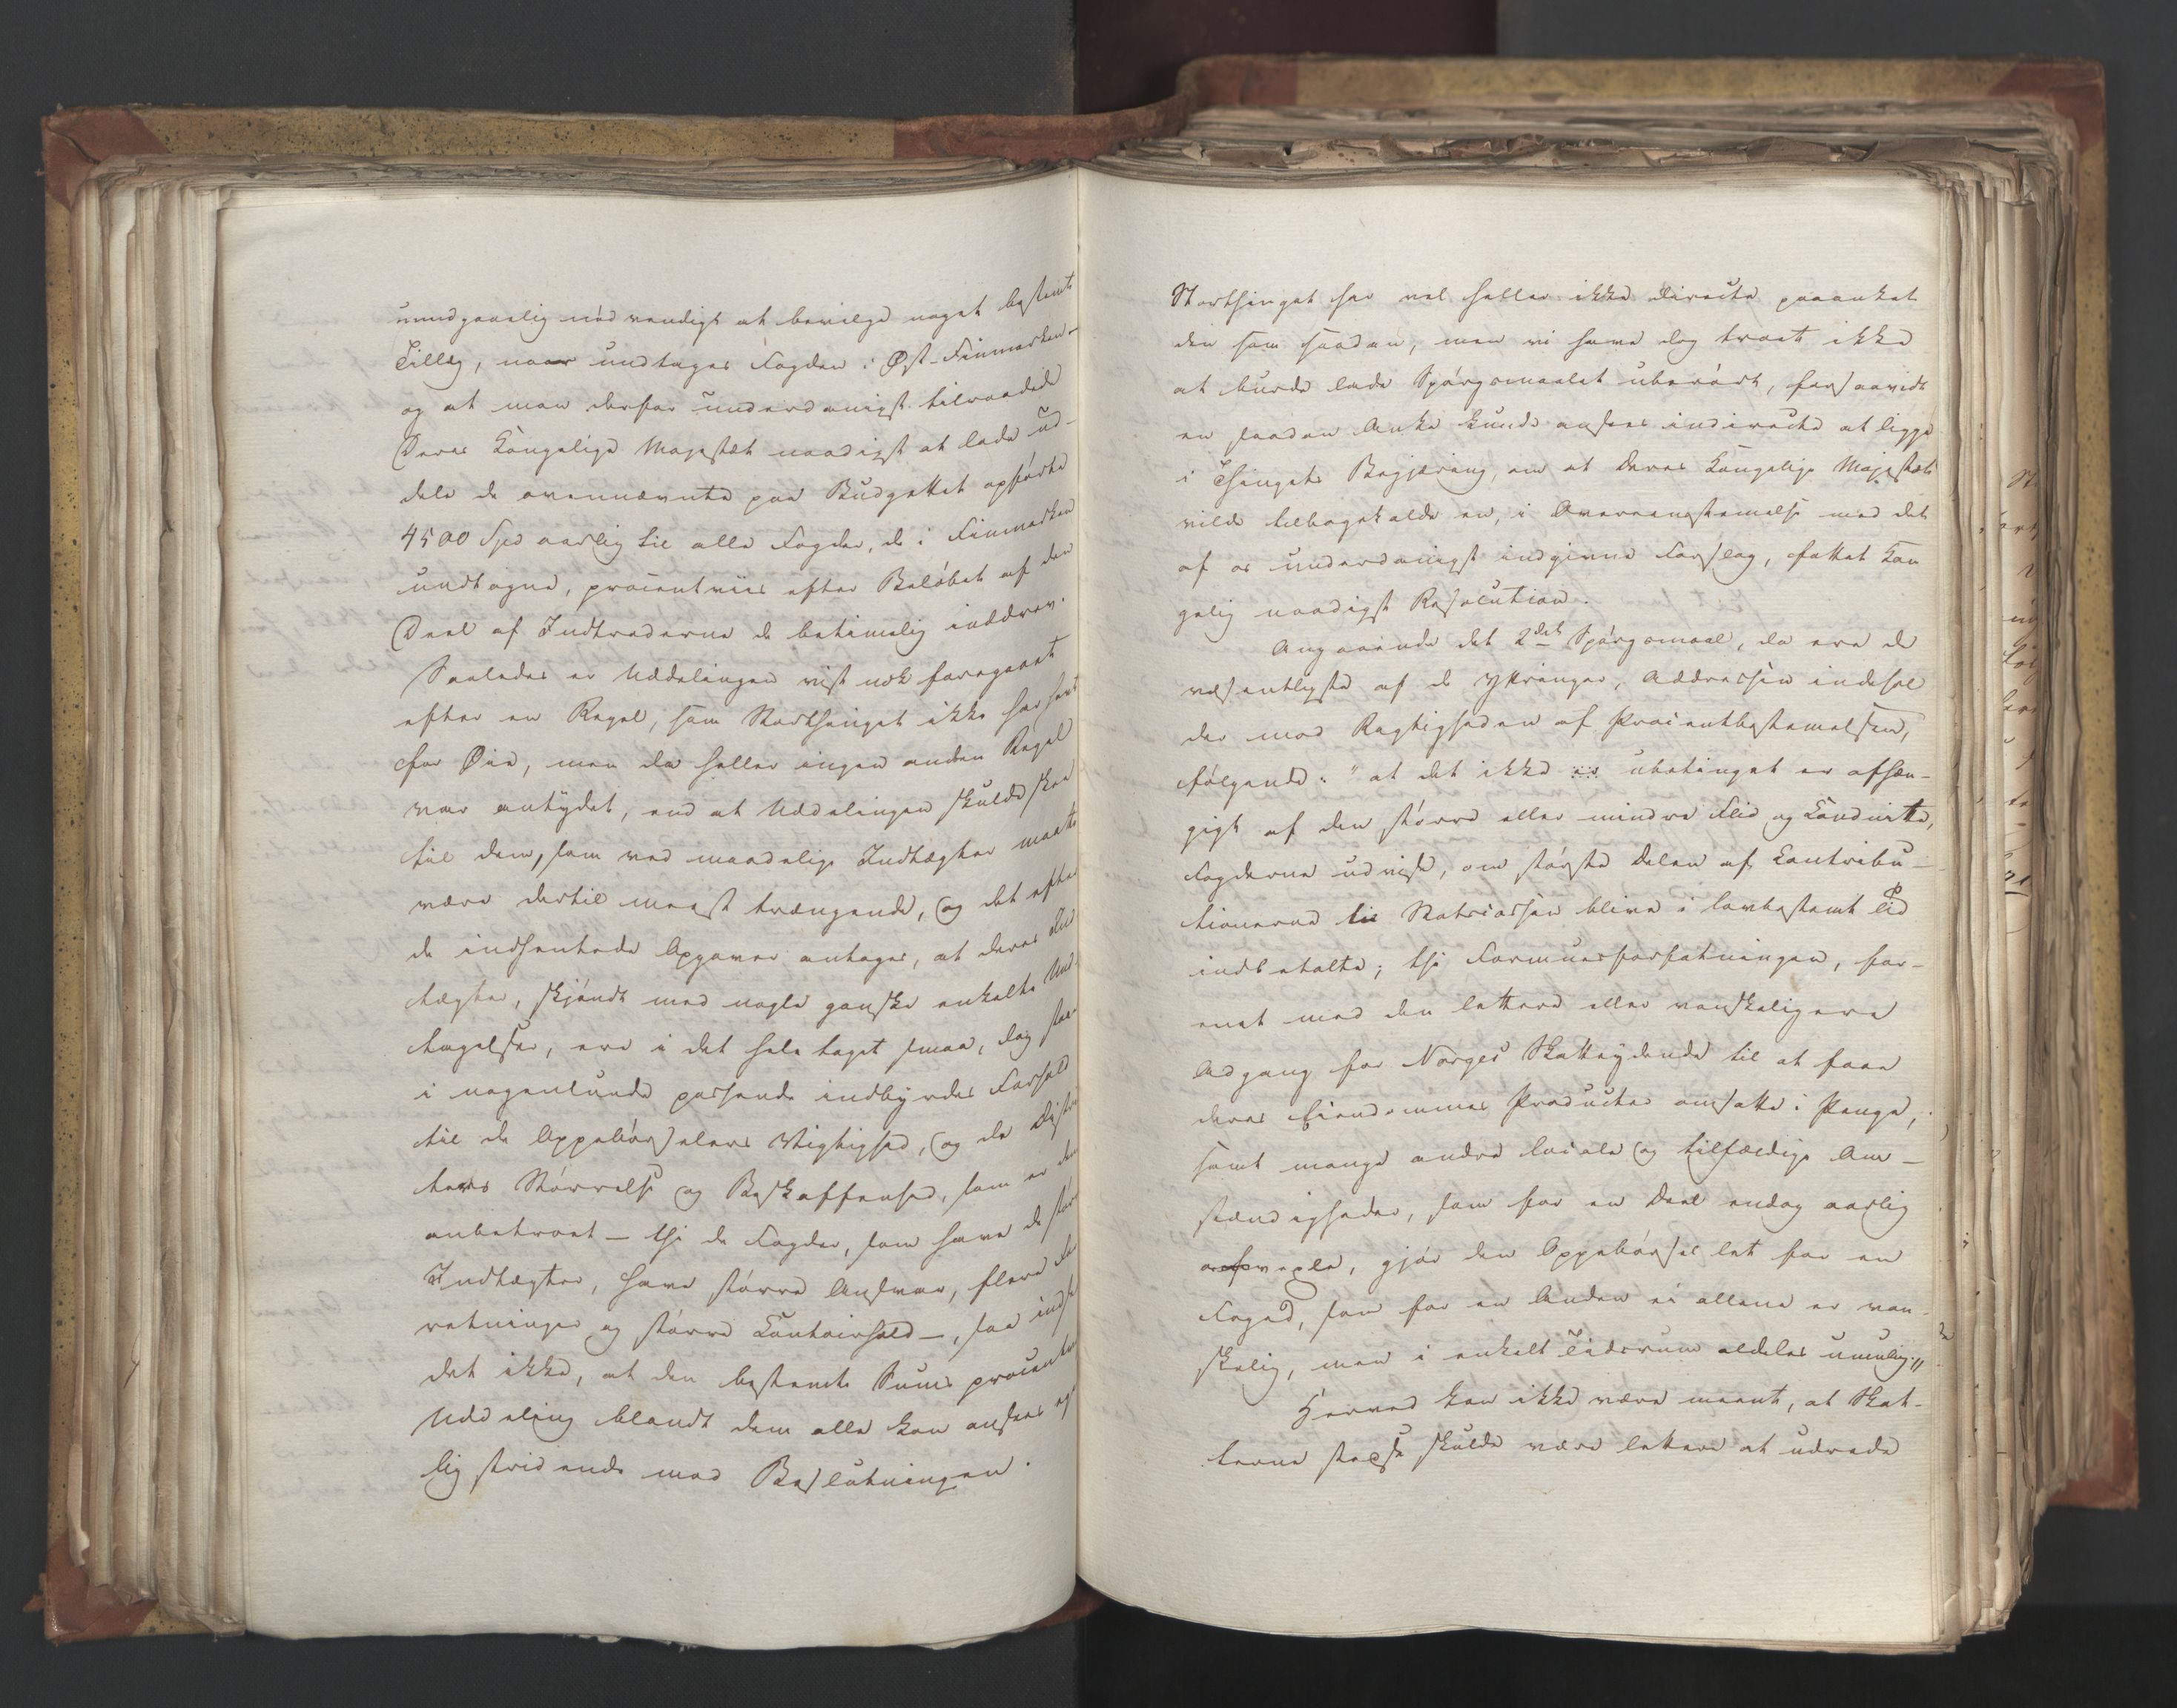 uundgaaelig nödvendigt at bevilge noget bestemt
Tillæg, naar undtages Fogden i Øst-Finmarken –
og at man derfor underdanigst tilraadede
Deres Kongelige Majestæt naadigst at lade ud-
dele de ovennævnte paa Budgettet opförte
4500 Spd aarlig til alle Fogder, de i Finmarken
undtagne, procentviis efter Belöbet af den
Deel af Indtraderne de betimelig inddrev.
Saaledes er Uddelingen vist nok foregaaet
efter en Regel, som Storthinget ikke har havt
for Øie, men da heller ingen anden Regel
var antydet, end at Uddelingen skulde skee
til dem, som ved maadelige Indtægter maatte
være dertil meest trængende, og det efter
de indhentede Opgaver antages, at deres Ind
tægter, skjöndt med nogle ganske enkelte Und
tagelser, ere i det hele taget smaa, dog staae
i nogenlunde passende indbyrdes Forhold
til de Oppebörselers Vigtighed, og de Distri
cters Störrelse og Beskaffenhed, som er dem
anbetroet – thi de Fogder, som have de störe
Indtægter, have större Ansvar, flere For
retninger og större Contoirhold –, saa indsees
det ikke, at den bestemte Sums procentviis
Uddeling blandt dem alle kan ansees egent
lig stridende mod Beslutningen.
Storthinget har vel heller ikke directe paaanket
den som saadan, men vi have dog troet ikke
at burde lade Spörgsmaalet uberört, forsaavidt
en saadan Anke kunde ansees indirecte at ligge
i Thingets Begjæring, om at Deres Kongelige Majestæt
vilde tilbagekalde en, i Overeensstemmelse med det
af os underdanigst indgivne Forslag, fattet Kon
gelig naadigst Resolution.
Angaaende det 2det Spörgsmaal, da ere de
væsentligste af de Yttringer, Addressen indehol
der mod Rigtigheden af Procentbestemmelsen,
fölgende: "at det ikke er ubetinget er afhæn-
gigt af den större eller mindre Flid og Conduite,
Fogderne udvise, om störste Delen af Contribu-
tionerne til Statscassen blive i lovbestemt Tid
indbetalte; thi Formuesforfatningen, for-
enet med den lettere eller vanskeligere
Adgang for Norges Skatteydende til at faae
deres Eiendommes Producter omsatte i Penge,
samt mange andre locale og tilfældige Om-
stændigheder, som for en Deel endog aarlig
afvexle, gjör den Oppebörsel let for en
Foged, som for en Anden ei allene er van-
skelig, men i enkelt Tidsrum aldeles umulig;"
Herved kan ikke være meent, at Skat-
terne skulde være lettere at udrede